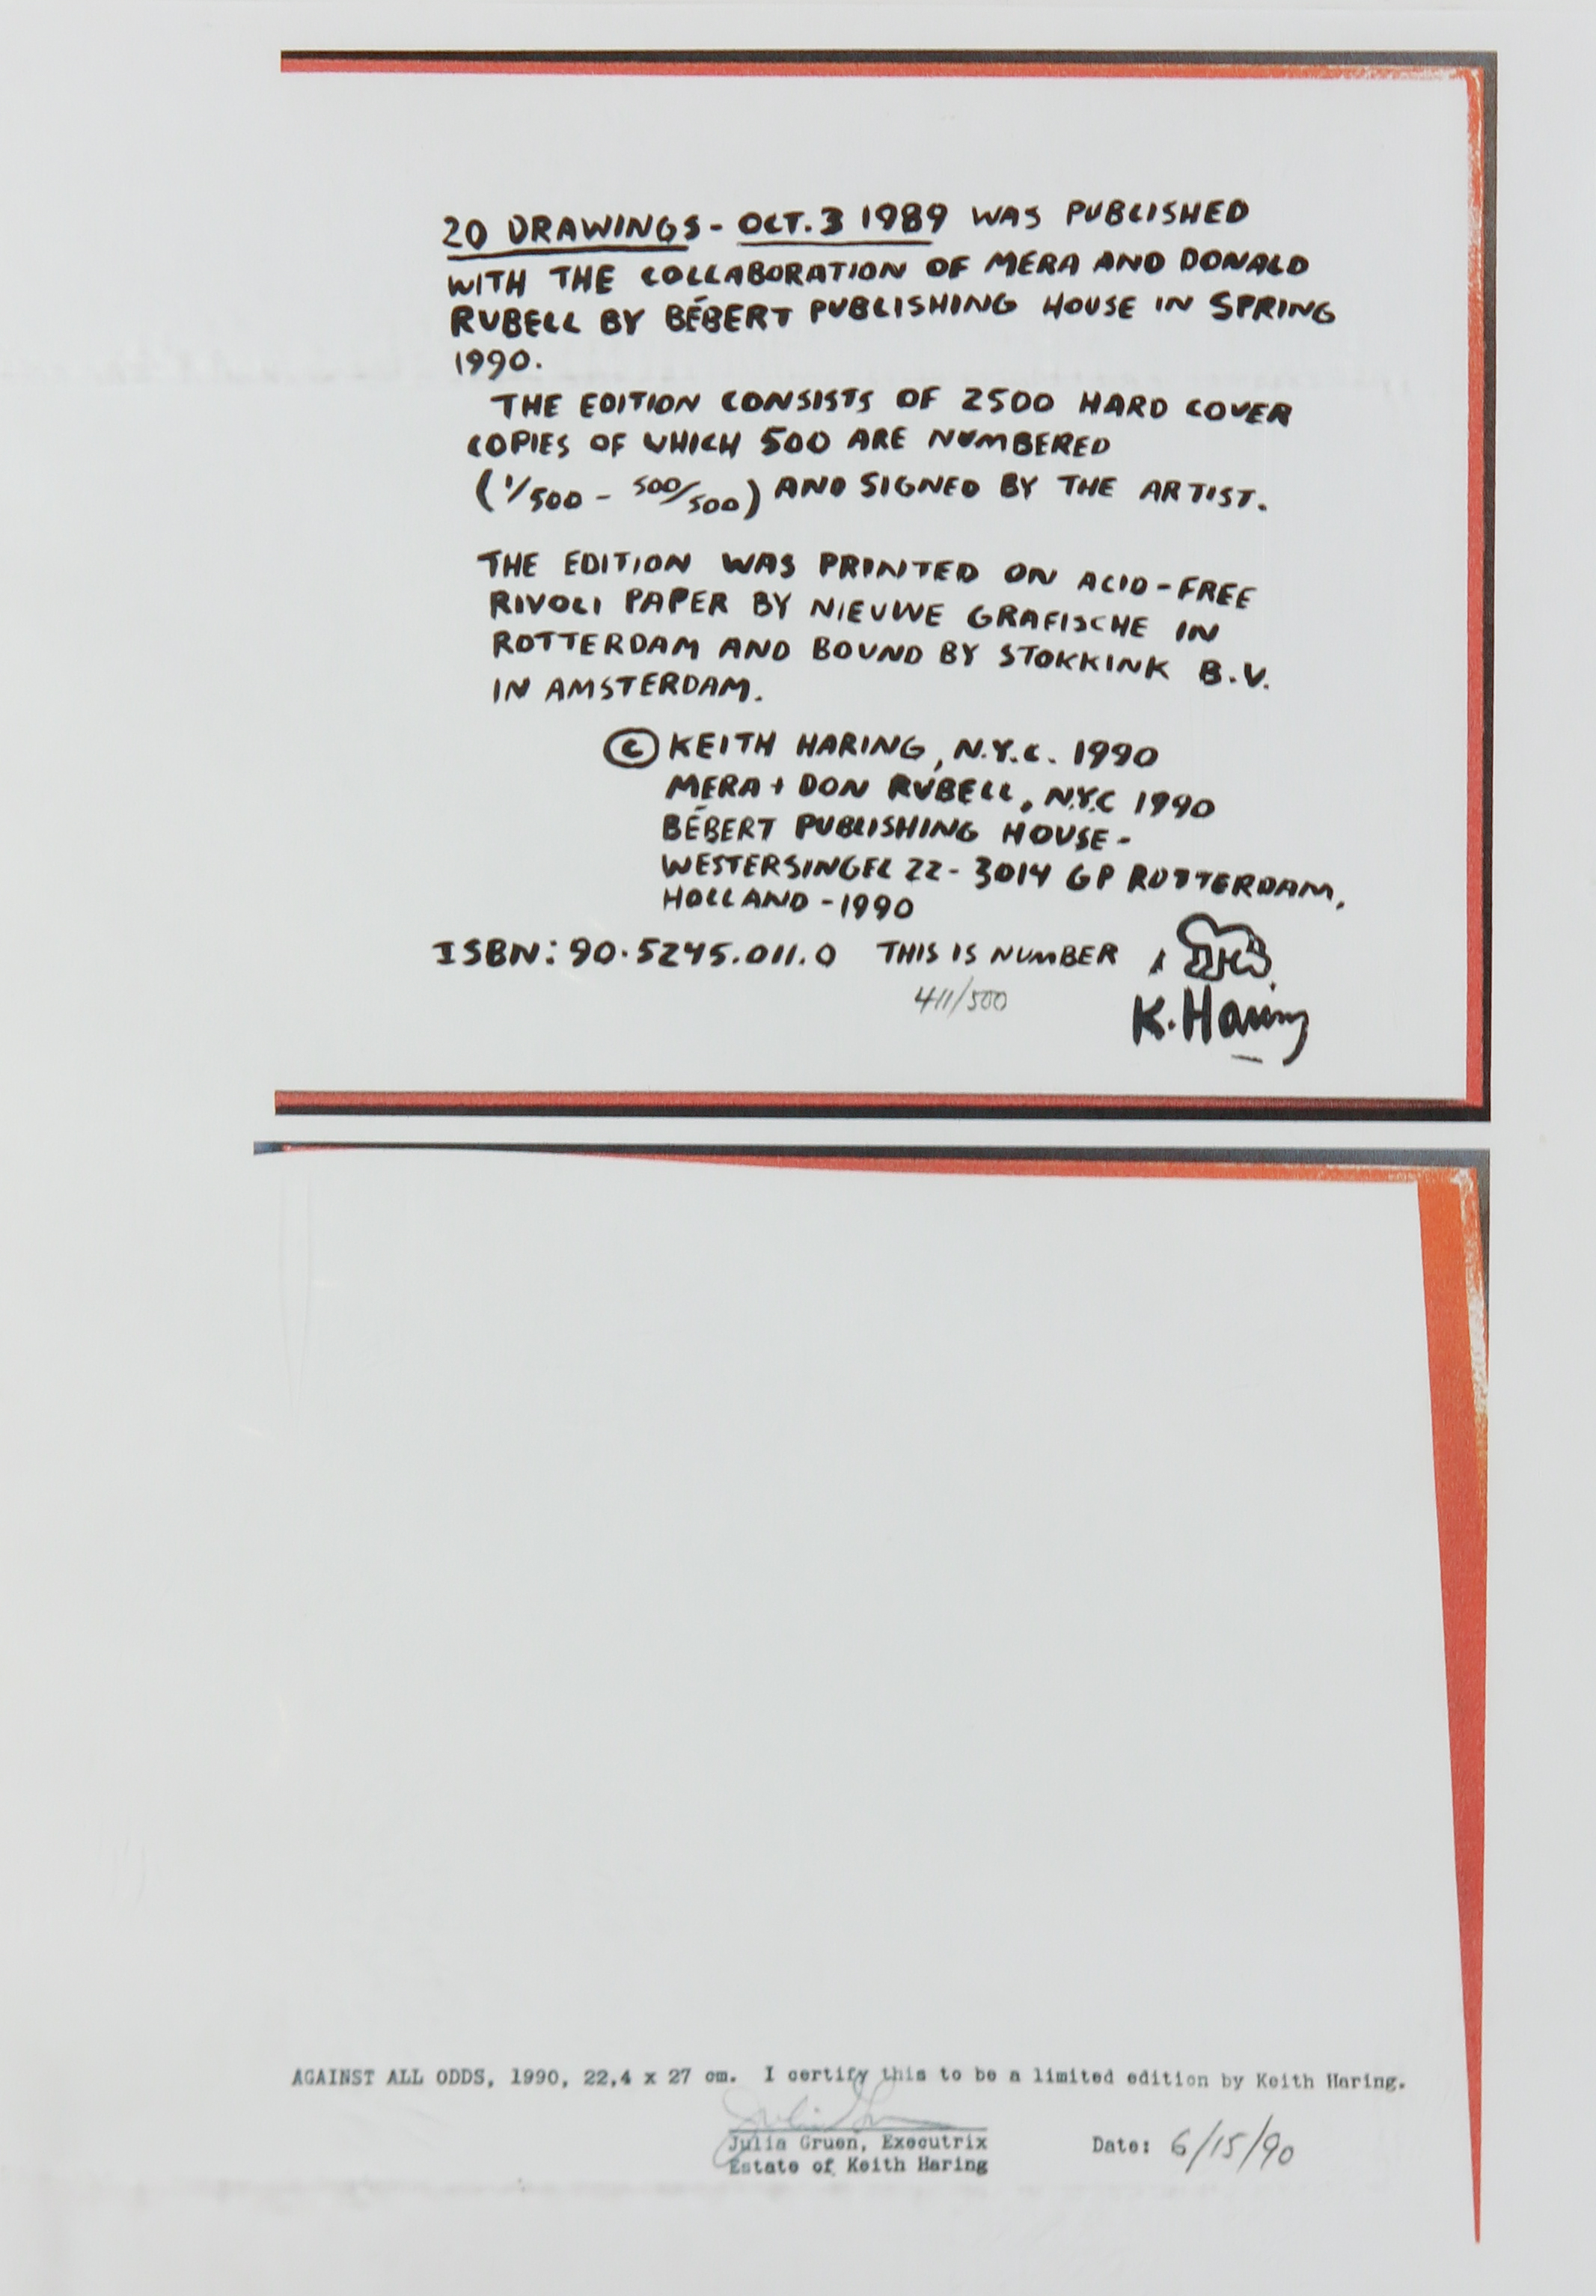 20 DRAWINGS - OCT. 3 1989 WAS PUBLISHED
WITH THE COLLABORATION OF MERA AND DONALD
RUBELL BY BÉBERT PUBLISHING HOUSE IN SPRING
1990.
THE EDITION CONSISTS OF 2500 HARD COVER
COPIES OF WHICH 500 ARE NUMBERED
(1/500 - 500/500) AND SIGNED BY THE ARTIST.
THE EDITION WAS PRINTED ON ACID-FREE
RIVOLI PAPER BY NIEUWE GRAFISCHE IN
ROTTERDAM AND BOUND BY STOKKINK B.V.
IN AMSTERDAM.
© KEITH HARING, N.Y.C. 1990
MERA + DON RUBELL, N.Y.C 1990
BÉBERT PUBLISHING HOUSE -
WESTERSINGEL 22 - 3014 GP ROTTERDAM,
HOLLAND - 1990
ISBN: 90.5245.011.0 THIS IS NUMBER
411/500
K. Haring
AGAINST ALL ODDS, 1990, 22,4 x 27 cm. I certify this to be a limited edition by Keith Haring.
Julia Gruen, Executrix
Date: 6/15/90
Estate of Keith Haring